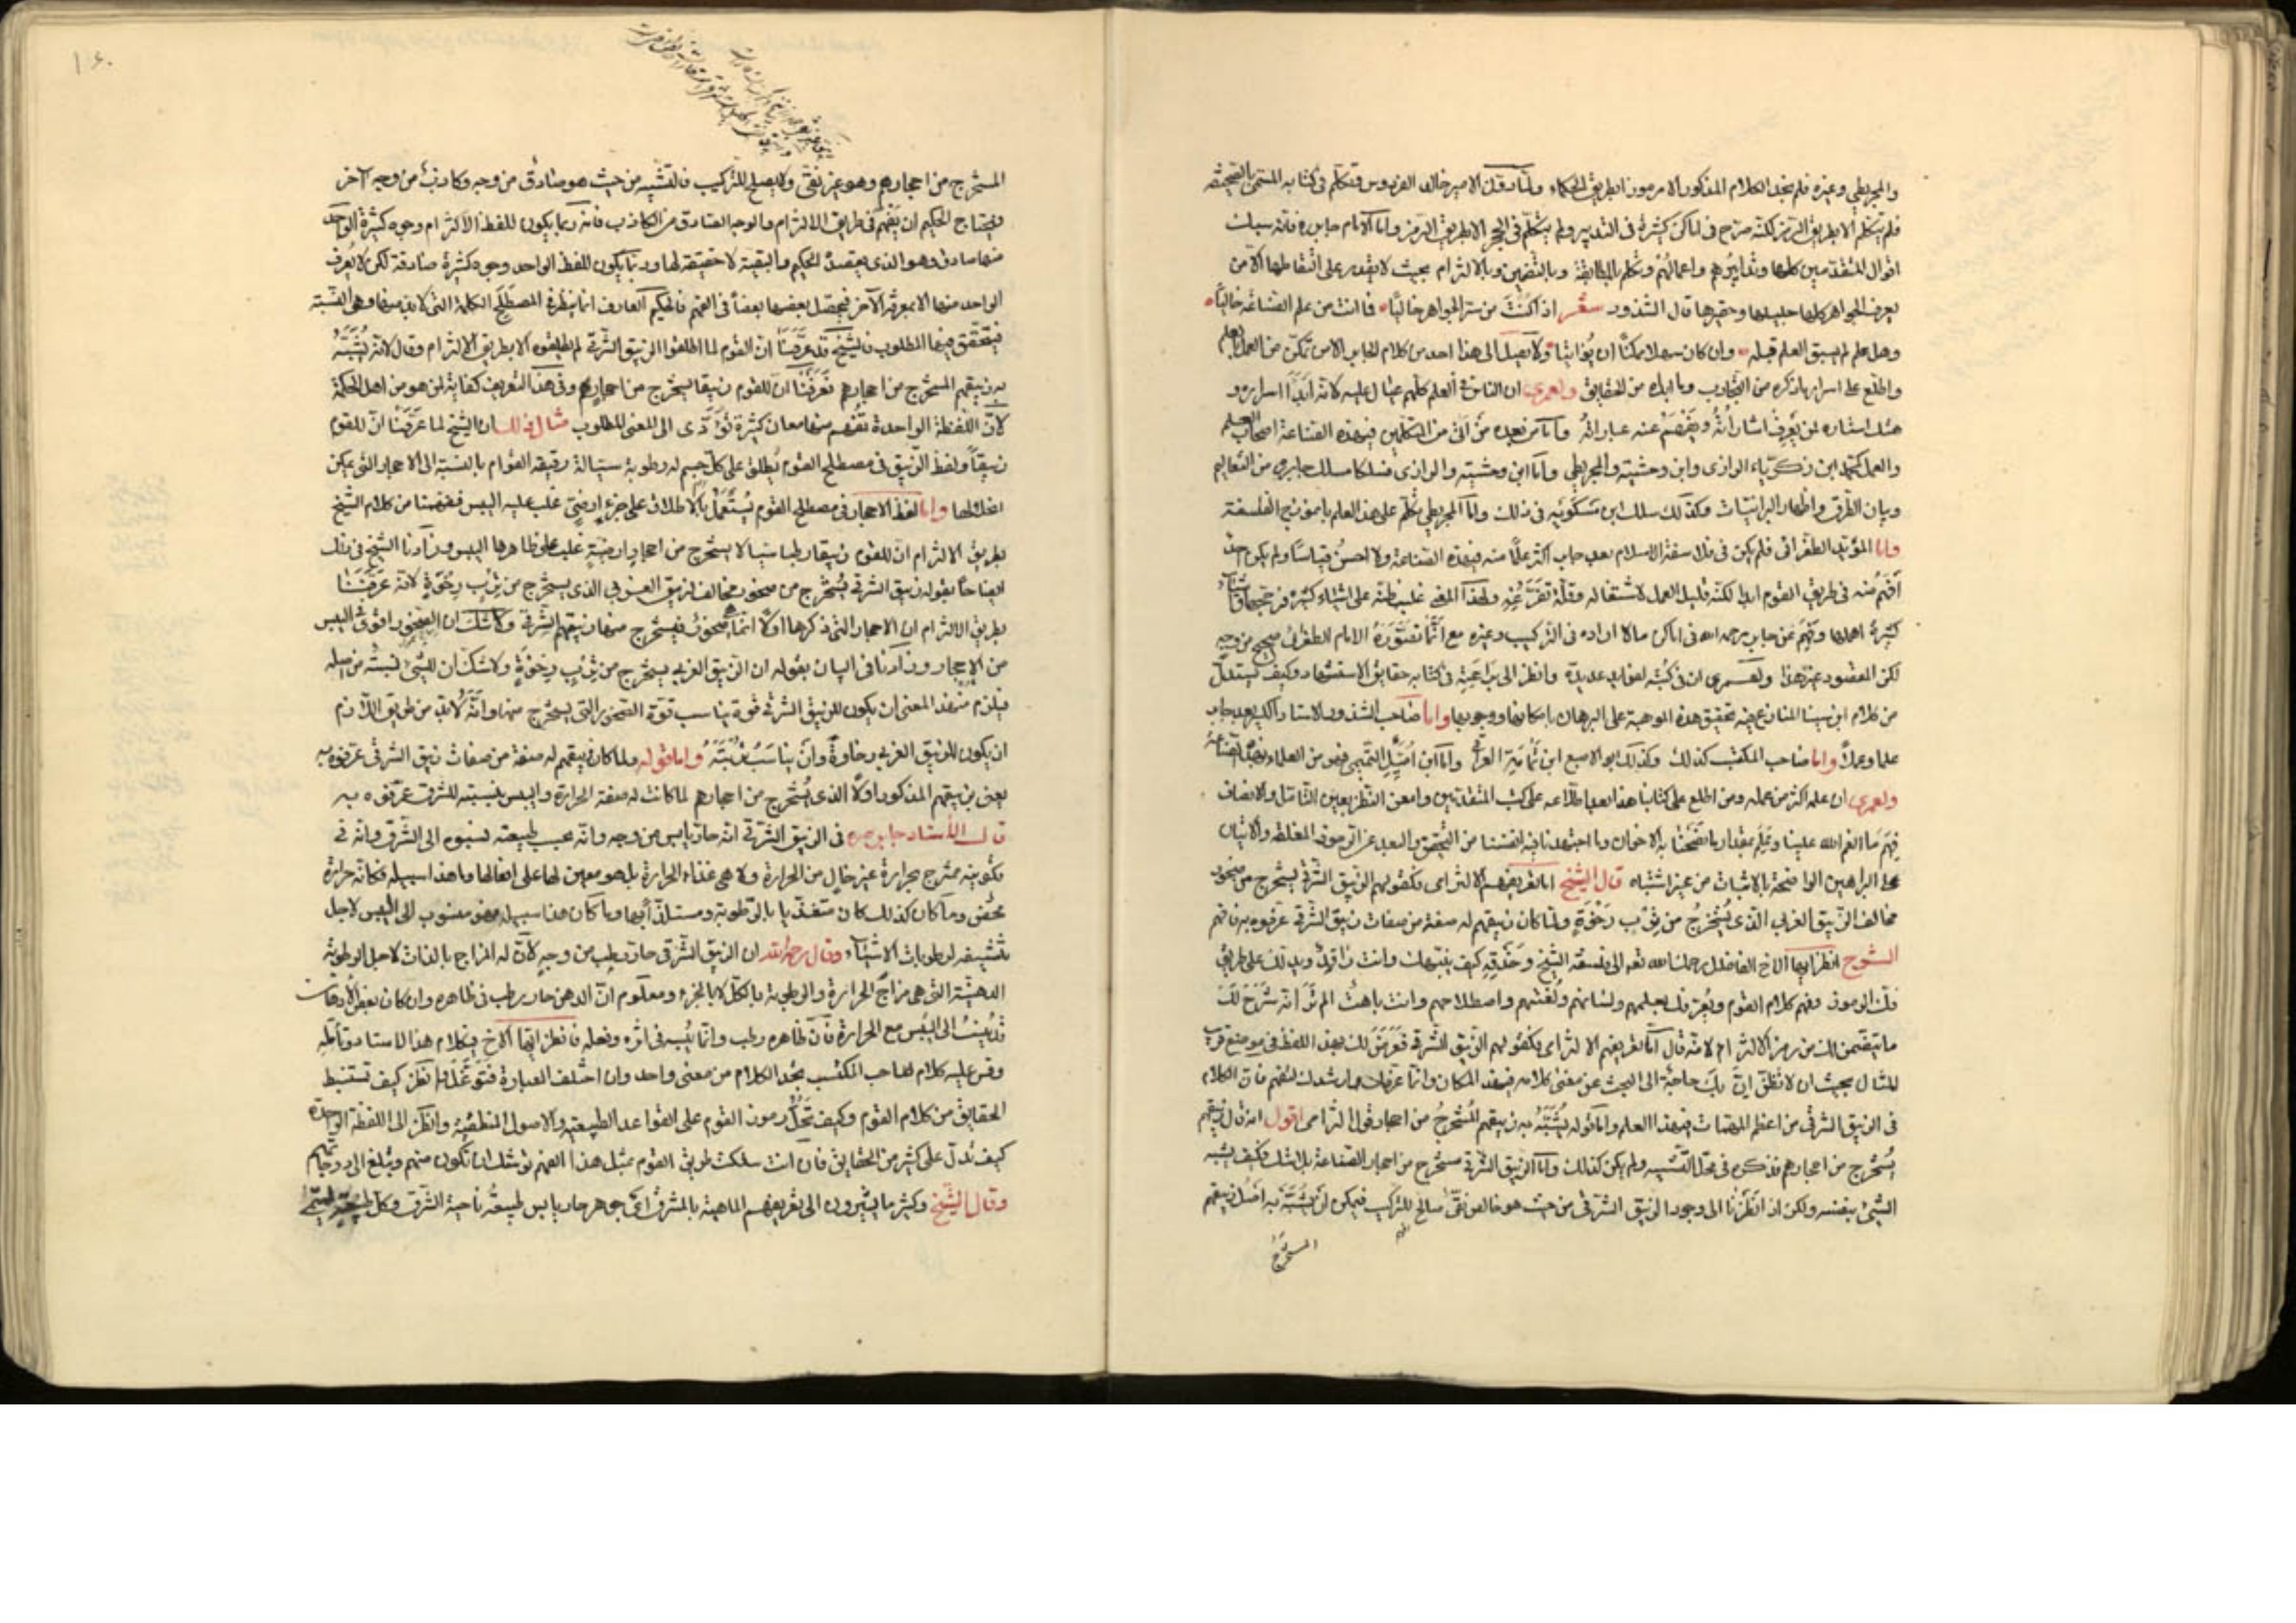 والمجريطي وغيره فلم نجد الكلام المذكور الا مرموزا بطريق الحكماء ولما دقق الامير خالد الفردوس وتكلم في كتابه المسمى
فلم يتكلم الا بطريق الرمز لكنه صرح في اماكن كثيرة في التدبير ولم يتكلم في الحجر الا بطريق الرمز واما الامام جابر فانه سلك
اقوال المتقدمين كلها وتدابيرهم واعمالهم وتكلم بالمطابقة وبالتضمين وبالالتزام بحيث لا يقدر على التقاطها الا من
يعرف الجواهر كلها جليلها وحقيرها قال الشذور شعر اذا كنت من ستر الجواهر خاليا فانت من علم الصناعة خاليا
وهل علم لم يسبق العلم قبله وان كان سهلا ممكنا ان يؤاتيا ولا تصل الى هذا احد من كلام جابر الا من تمكن من العمل
واطلع على اسرار ما ذكره من التجارب وما ابداه من الحقايق ولعمري ان الناس في العلم كلهم عيال عليه لانه ابدا اسراره و
هتك استاره لمن يعرف اشاراته ويفهم عنه عباراته واما من بعده من اتى من المتكلمين في هذه الصناعة اصحاب العلم
والعمل كمحمد ابن زكرياء الرازي وابن وحشية والمجريطي واما ابن وحشية والرازي فسلكا مسلك جابر من التعاليم
وبيان الطرق واظهار البرانيات وكذلك سلك ابن مسكويه في ذلك واما المجريطي تكلم على هذا العلم بانموذج الفلسفة
واما المؤيد الطغرائي فلم يكن في فلاسفة الاسلام بعد جابر اكثر علما منه في هذه الصناعة ولا احسن قياسا ولم يكن احد
افهم منه في طريق القوم ابدا لكنه قليل العمل لاشتغاله وقلة تفرغه ولهذا المعنى غلب ظنه على اشياء كثيرة
كثيرة اهملها وفهم عن جابر رحمه الله في اماكن مالا اراده في التركيب وغيره مع ان ما تصوره الامام الطغرائي صحيح من وجه
لكن المقصود غير هذا ولعمري ان في كتبه لفوايد عديدة وانظر الى براعته في كتابه حقايق الاستشهاد وكيف يستدل
من كلام ابن سينا المنازع فيه بتحقيق هذه الموهبة على البرهان بامكانها ووجودها واما صاحب الشذور الاستاذ الكبير بعد جابر
علما وعملا واما صاحب المكتسب كذلك وكذلك ابو الاصبع ابن تمام العراقي واما ابن اميل التميمي فهو من العلماء
ولعمري ان علمه اكثر من عمله ومن اطلع على كتابنا هذا بعد اطلاعه على كتب المتقدمين وامعن النظر بعين التأمل والانصاف
فهم ما انعم الله علينا وعلم مقدار ما نصحنا به الاخوان وما اجتهدنا فيه انفسنا من التحقيق والبعد عن الرموز المغلطة والاتيان
على البراهين الواضحة بالاثبات من غير اشتباه قال الشيخ اما تعريفهم الالتزامي فكقولهم الزيبق الشرقي يستخرج من صخور
مخالف الزيبق الغربي الذي يستخرج من ترب رخوة ولما كان زيبقهم له صفة من صفات زيبق الشرقي عرفوه به فافهم
الشرح انظر ايها الاخ الفاضل رحمك الله تعالى الى فلسفة الشيخ وحذقه كيف ينبهك وانت ذاهل ويدلك على طريق
فك الرموز وفهم كلام القوم ويعرفك بعلمهم ولسانهم ولغتهم واصطلاحهم وانت باهت الم تر انه شرح لك
ما يتضمن لك من رمز الالتزام لانه قال اما تعريفهم الالتزامي فكقولهم الزيبق الشرقي فعرض لك بهذا اللفظ في موضع قريب
المثال بحيث ان لا تظن ان بك حاجة الى البحث عن معنى كلامه في هذا المكان وانما عرفك وارشدك لتفهم فان الكلام
في الزيبق الشرقي من اعظم المهمات في هذا العلم واما قوله يشبه به زيبقهم المستخرج من احجار قول التزامي اقول انه قال زيبقهم
يستخرج من احجارهم فذكره في محل التشبيه ولم يكن كذلك واما الزيبق الشرقي مستخرج من احجار الصناعة بلا شك فكيف يشبه
الشيء بنفسه ولكن اذا نظرنا الى وجود الزيبق الشرقي من حيث هو خالص نقي صالح للتركيب فيمكن ان يشبه به اصل زيبقهم
المستخرج
١٤٠
المستخرج من احجارهم وهو غير نقي ولا يصلح للتركيب فالتشبيه من حيث هو صادق من وجه وكاذب من وجه آخر
ويحتاج الحكيم ان يفهم في طريق الالتزام والوجه الصادق من الكاذب فانه ربما يكون للفظ الالتزام وجوه كثيرة الواحد
منها صادق وهو الذي يقصد الحكيم والبقية لا حقيقة لها وربما يكون للفظ الواحد وجوه كثيرة صادقة لكن لا يعرف
الواحد منها الا بمعرفة الآخر فيحصل بعضها بعضا في الفهم فالحكيم العارف اذا نظر في المصطلح الكلمة التي لابد منها وهي النسبة
فيتحقق فيها المطلوب فالشيخ قد عرفنا ان القوم لما اطلقوا الزيبق الشرقي لم يطلقوه الا بطريق الالتزام وقال لانه يشبه
به زيبقهم المستخرج من احجارهم فعرفنا ان للقوم زيبقا يستخرج من احجارهم وفي هذا التعريف كفاية لمن هو من اهل الحكمة
لان اللفظة الواحدة تفهم منها معان كثيرة تؤدى الى المعنى المطلوب مثال ذلك ان الشيخ لما عرفنا ان للقوم
زيبقا ولفظ الزيبق في مصطلح القوم يطلق على كل جسم له رطوبة سيالة رقيقة القوام بالنسبة الى الاحجار التي يمكن
انحلالها واما لفظ الاحجار في مصطلح القوم يستعمل بالاطلاق على جزء ارضي غلب عليه اليبس ففهمنا من كلام الشيخ
بطريق الالتزام ان للقوم زيبقا رطبا سيالا يستخرج من احجار ارضية غلب على ظاهرها اليبس وزادنا الشيخ في ذلك
ايضاحا بقوله زيبق الشرقي يستخرج من صخور مخالف لزيبق الغربي الذي يستخرج من ترب رخوة لانه عرفنا
بطريق الالتزام ان الاحجار التي ذكرها اولا انما صخور فيستخرج منها زيبقهم الشرقي ولا شك ان الصخور اقوى في اليبس
من الاحجار وزادنا في البيان بقوله ان الزيبق الغربي يستخرج من ترب رخوة ولا شك ان للشيء نسبة من اصله
فيلزم من هذا المعنى ان يكون للزيبق الشرقي قوة يناسب قوة الصخور التي يستخرج منها وانه لابد من طريق اللازم
ان يكون للزيبق الغربي رخاوة وان يناسب تربته واما قوله ولما كان زيبقهم له صفة من صفات زيبق الشرقي عرفوه به
يعني زيبقهم المذكور اولا الذي يستخرج من احجارهم لما كانت له صفة الحرارة واليبس بنسبته للشرق عرفوه به
قال الاستاد جابر في الزيبق الشرقي انه حار يابس من وجه وانه بحسب طبيعته نسبوه الى الشرق وانه في
تكوينه ممتزج بحرارة غير خال من الحرارة ولا هي غذاء الحرارة بل هو معين لها على افعالها وما هذا سبيله فكأنه حرارة
محض وما كان كذلك كان متغذيا بالرطوبة ومستلذا بها وما كان هذا سبيله فهو منسوب الى اليبس لاجل
تنشيفه لرطوبات الاشياء وقال رحمه الله ان الزيبق الشرقي حار رطب من وجه لان له المزاج بالذات لاجل الرطوبة
الدهنية التي هي مزاج الحرارة والرطوبة بالكل لا بالجزء ومعلوم ان الدهن حار رطب في ظاهره وان كان بعض الادهان
قد ينسب الى اليبس مع الحرارة فان ظاهره رطب وانما يبسه في اثره وفعله فانظر ايها الاخ في كلام هذا الاستاد وتأمله
وقس عليه كلام صاحب المكتسب تجد الكلام من معنى واحد وان اختلف العبارة فتوغل انظر كيف تستنبط
الحقايق من كلام القوم وكيف تحل رموز القوم على القواعد الطبيعية والاصول المنطقية وانظر الى اللفظة الواحدة
كيف تدل على كثير من الحقايق فان انت سلكت طريق القوم بمثل هذا الفهم توشك ان تكون منهم وتبلغ الى درجاتهم
وقال الشيخ وكثير ما يشيرون الى تعريفهم الماهية بالمشرق اي جوهر حار يابس طبيعته ناحية الشرق وكل